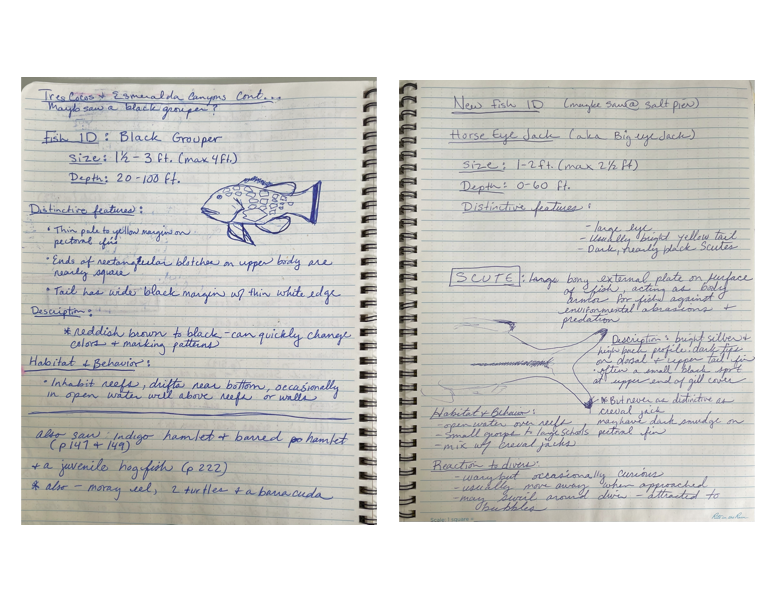 Tres Cocos & Esmeralda Canyons Cont...
Maybe saw a black grouper?
Fish ID: Black Grouper
Size: 1½ - 3 ft. (max 4ft.)
Depth: 20-100 ft.
Distinctive features:
• Thin pale to yellow margin on
pectoral fin
• Ends of rectangular blotches on upper body are
nearly square
• Tail has wide black margin w/ thin white edge
Description:
* reddish brown to black - can quickly change
colors & marking patterns
Habitat & Behavior:
• Inhabit reefs, drifts near bottom, occasionally
in open water well above reefs or walls
also saw indigo hamlet & barred hamlet
(p 147 & 149)
+ a juvenile hogfish (p.222)
* also - moray eel, 2 turtles & a barracuda
New fish ID (maybe saw @ salt pier)
Horse Eye Jack (aka Big eye Jack)
Size: 1-2 ft. (max 2½ ft)
Depth: 0-60 ft.
Distinctive features:
- large eye
- Usually bright yellow tail
- Dark, nearly black Scutes
SCUTE: Large bony external plate on surface
of a fish, acting as body
armor for fish against
environmental abrasions &
predation
Description: bright silver &
high back profile. dark tips
on dorsal & upper tail fin
• often a small black spot
at upper end of gill cover
* But never as distinctive as
creval jack
may have dark smudge on
pectral fin
Habitat & Behavior:
- open water over reefs
- small groups to large schools
- mix w/ creval jacks
Reaction to divers:
- wary but occasionally curious
- usually move away when approached
- may swirl around diver - attracted to
bubbles